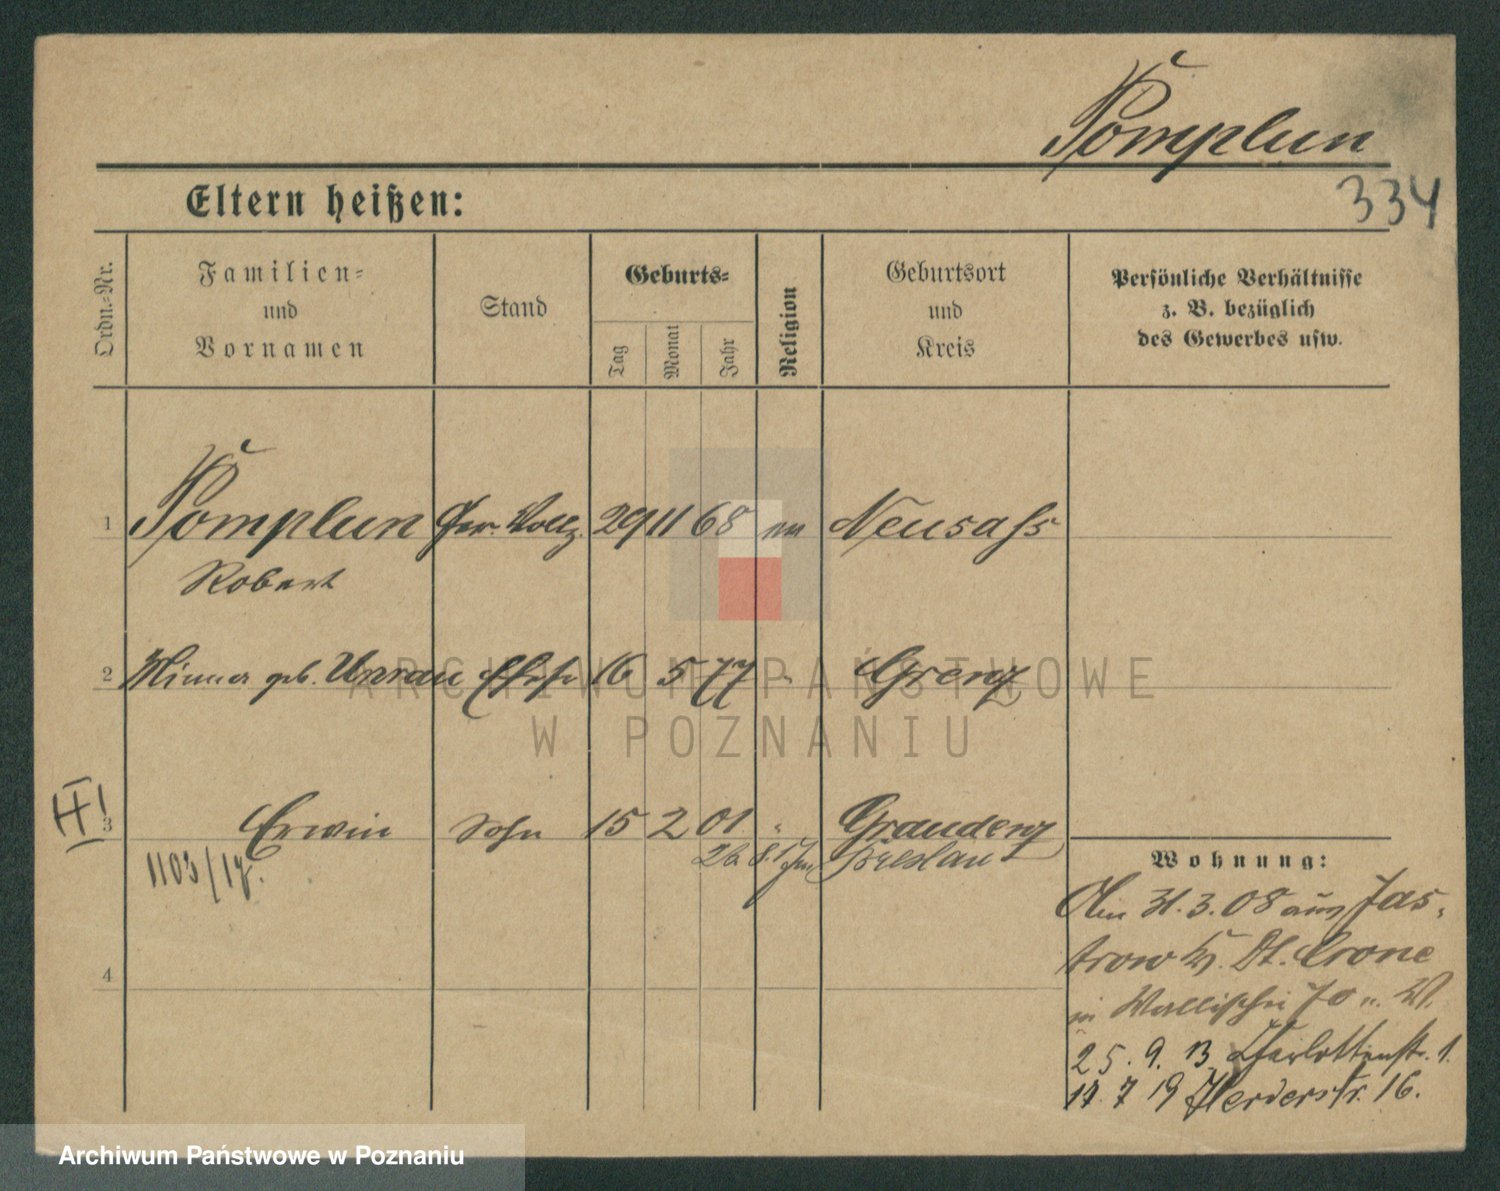 Pomplun
334
Eltern heißen:
Ordn.-Nr.
Familien-
und
Vornamen
Stand
Geburts-
Tag
Monat
Jahr
Religion
Geburtsort
und
Kreis
Persönliche Verhältnisse
z. B. bezüglich
des Gewerbes usw.
1 Pomplun Ger. Vollz. 29 11 68 ev Neusass
Robert
2 Minna geb. Unrau Ehefr 16 5 77 " Grenz
ARCHIWUM PAŃSTWOWE
W POZNANIU
II!
3 Erwin Sohn 15 2 01 " Graudenz
1103/17.
26. 8. Breslau
Wohnung:
Am 31.3.08 aus Jas-
trow Kr. Dt. Crone
in Wallischei 70 W.
25. 9. 13 Charlottenstr. 1.
17. 7 19 Herderstr. 16.
4
Archiwum Państwowe w Poznaniu